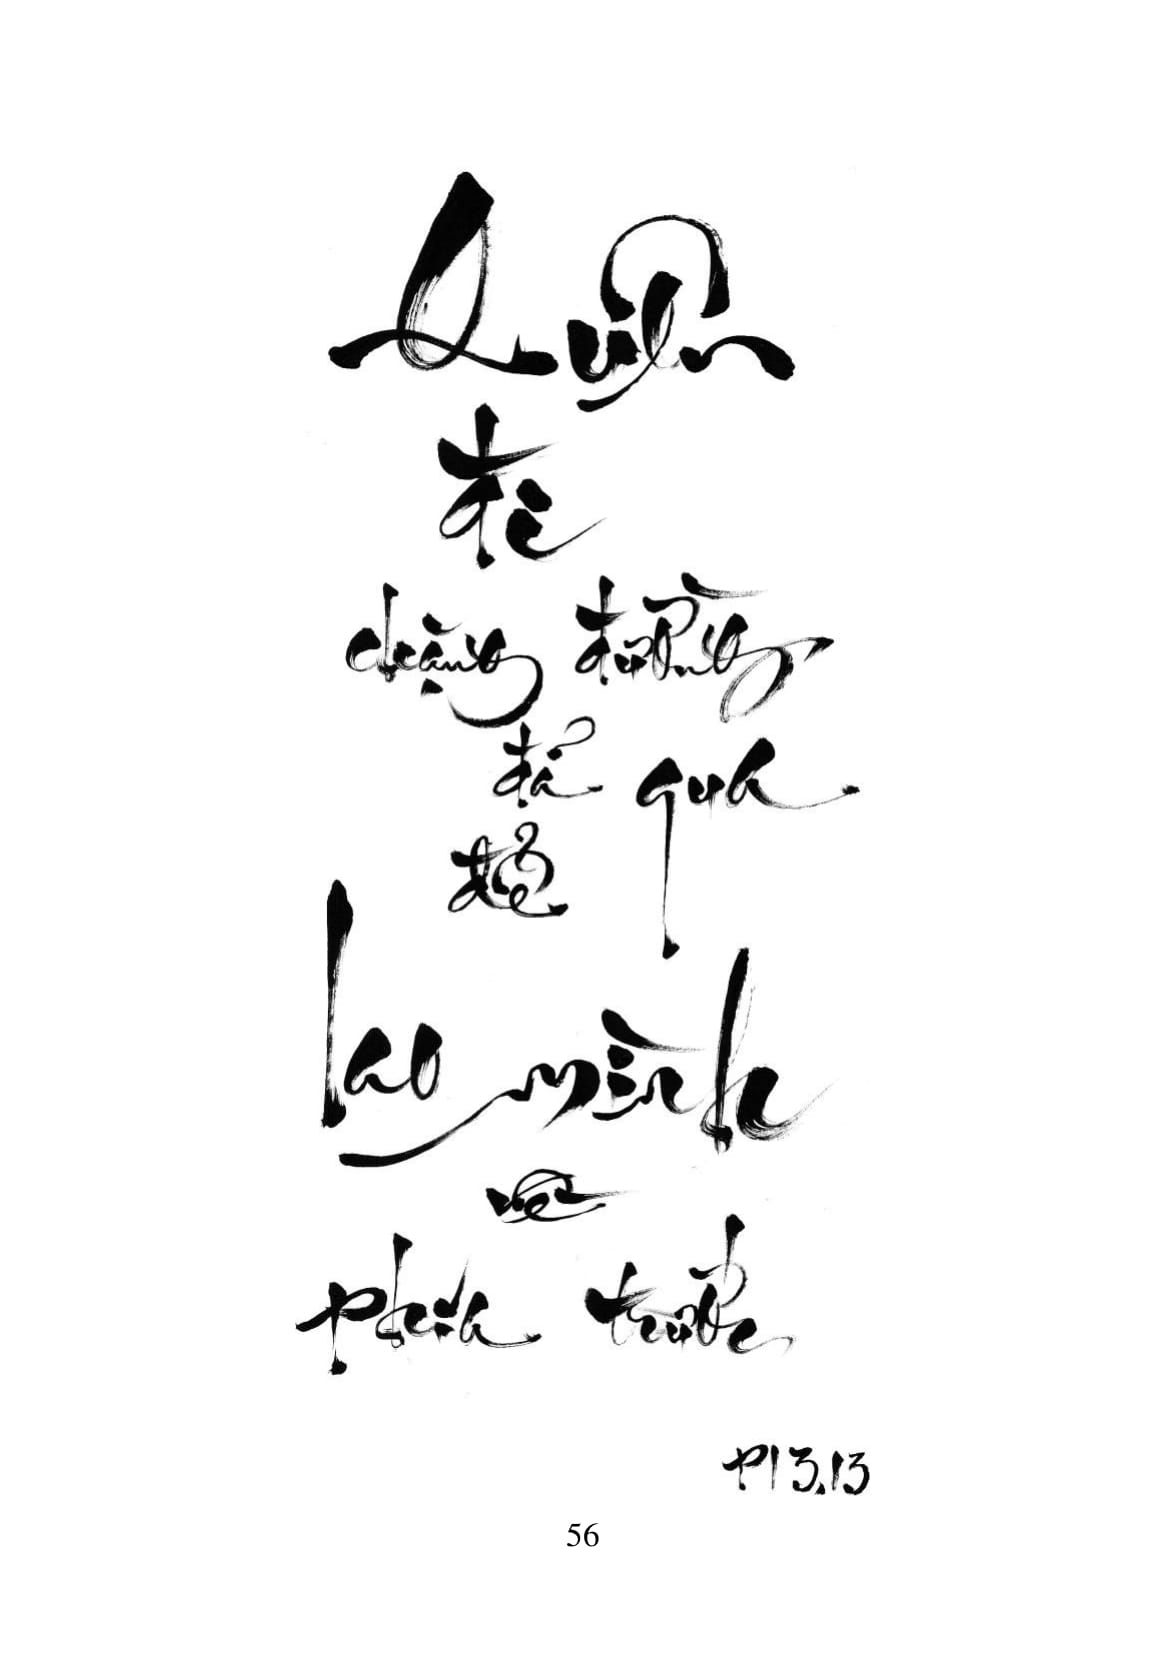 Quên
đi
chặng đường
đã qua
để
lao mình
về
phía trước
Pl 3,13
56